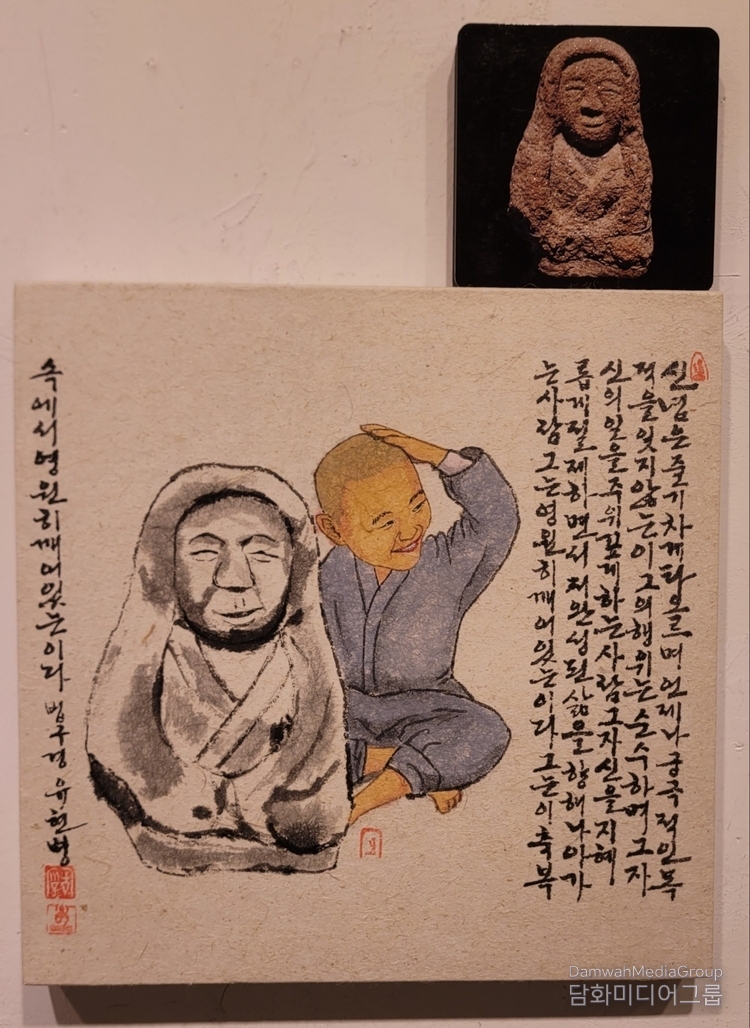 신념은 줄기차게 타오르며 언제나 궁극적인 목
적을 잊지 않는 이 그의 행위는 순수하며 그 자
신의 일을 주위깊게 하는 사람 그 자신을 지혜
롭게 절제하면서 저 완성된 삶을 향해 나아가
는 사람 그는 영원히 깨어있는 이다 그는 이 축복
속에서 영원히 깨어있는 이다 법구경 유현병
DamwahMediaGroup
담화미디어그룹